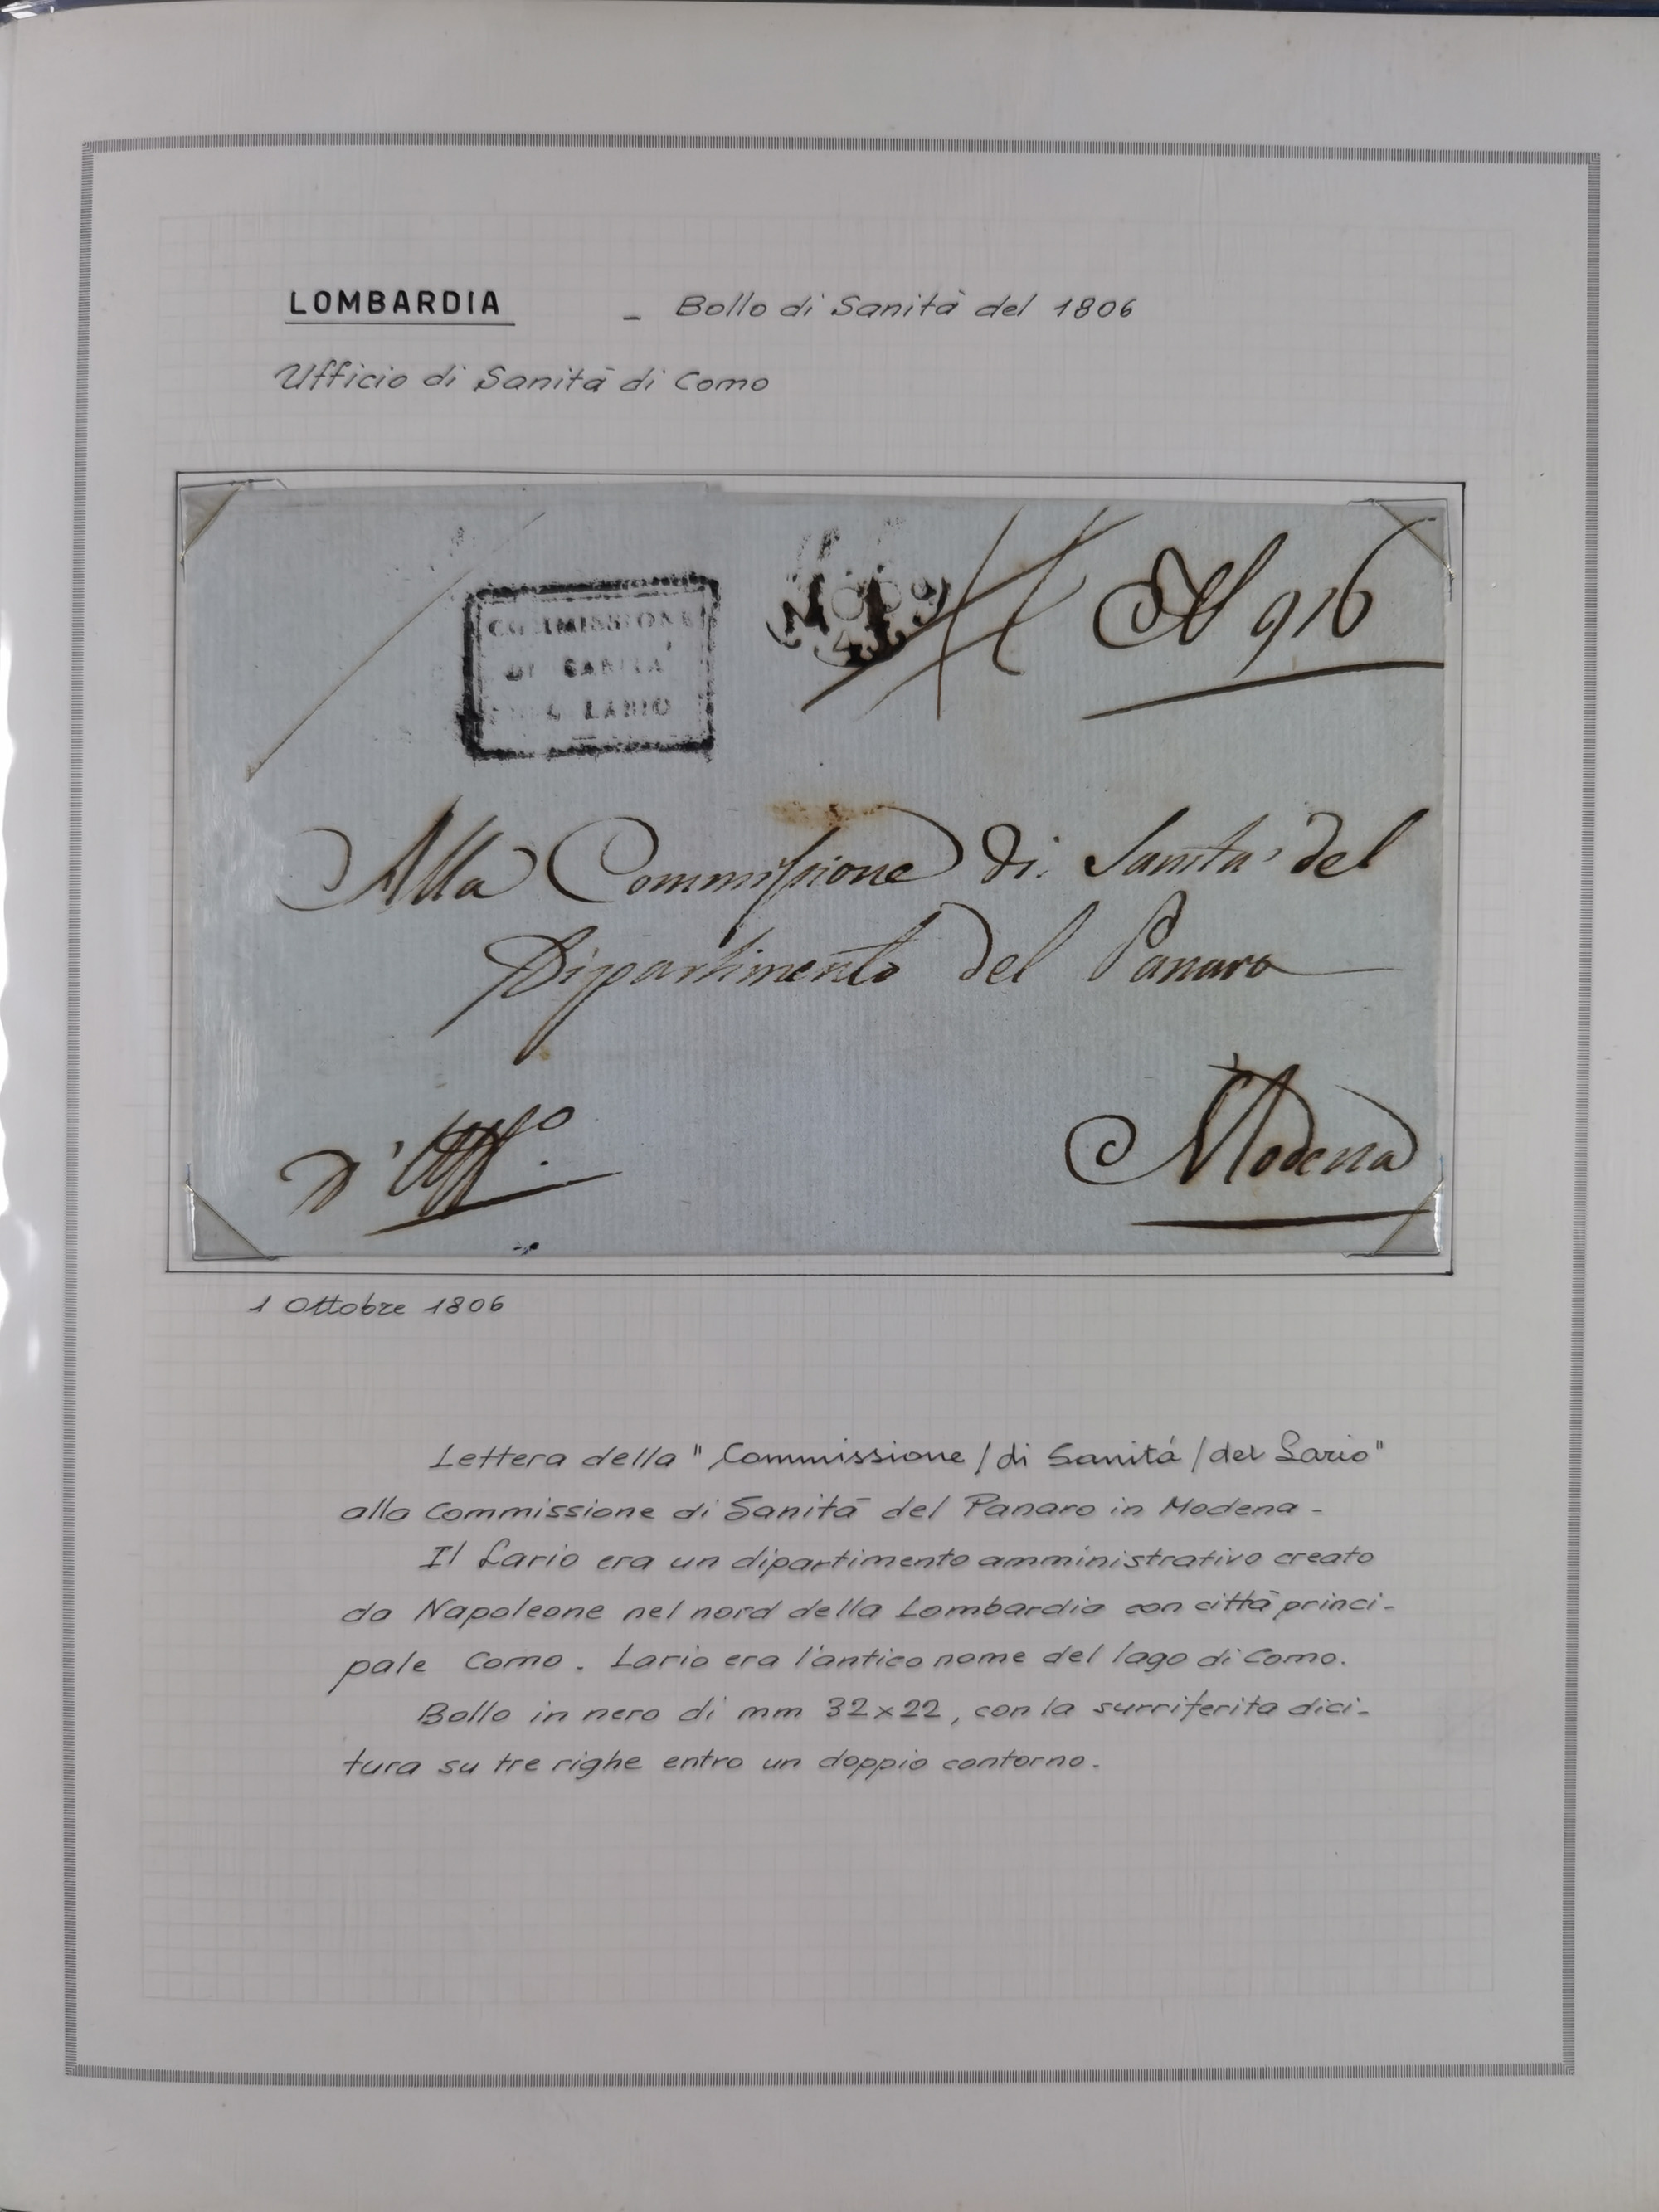 LOMBARDIA - Bollo di Sanità del 1806
Ufficio di Sanità di Como
COMMISSIONE
DI SANITA'
DEL LARIO
916
Alla Commissione di Sanita' del
Dipartimento del Panaro
D'Uffo.
Modena
1 Ottobre 1806
Lettera della "Commissione/di Sanitá/del Lario"
alla Commissione di Sanità del Panaro in Modena -
Il Lario era un dipartimento amministrativo creato
da Napoleone nel nord della Lombardia con città princi-
pale Como. Lario era l'antico nome del lago di Como.
Bollo in nero di mm 32x22, con la surriferita dici-
tura su tre righe entro un doppio contorno.